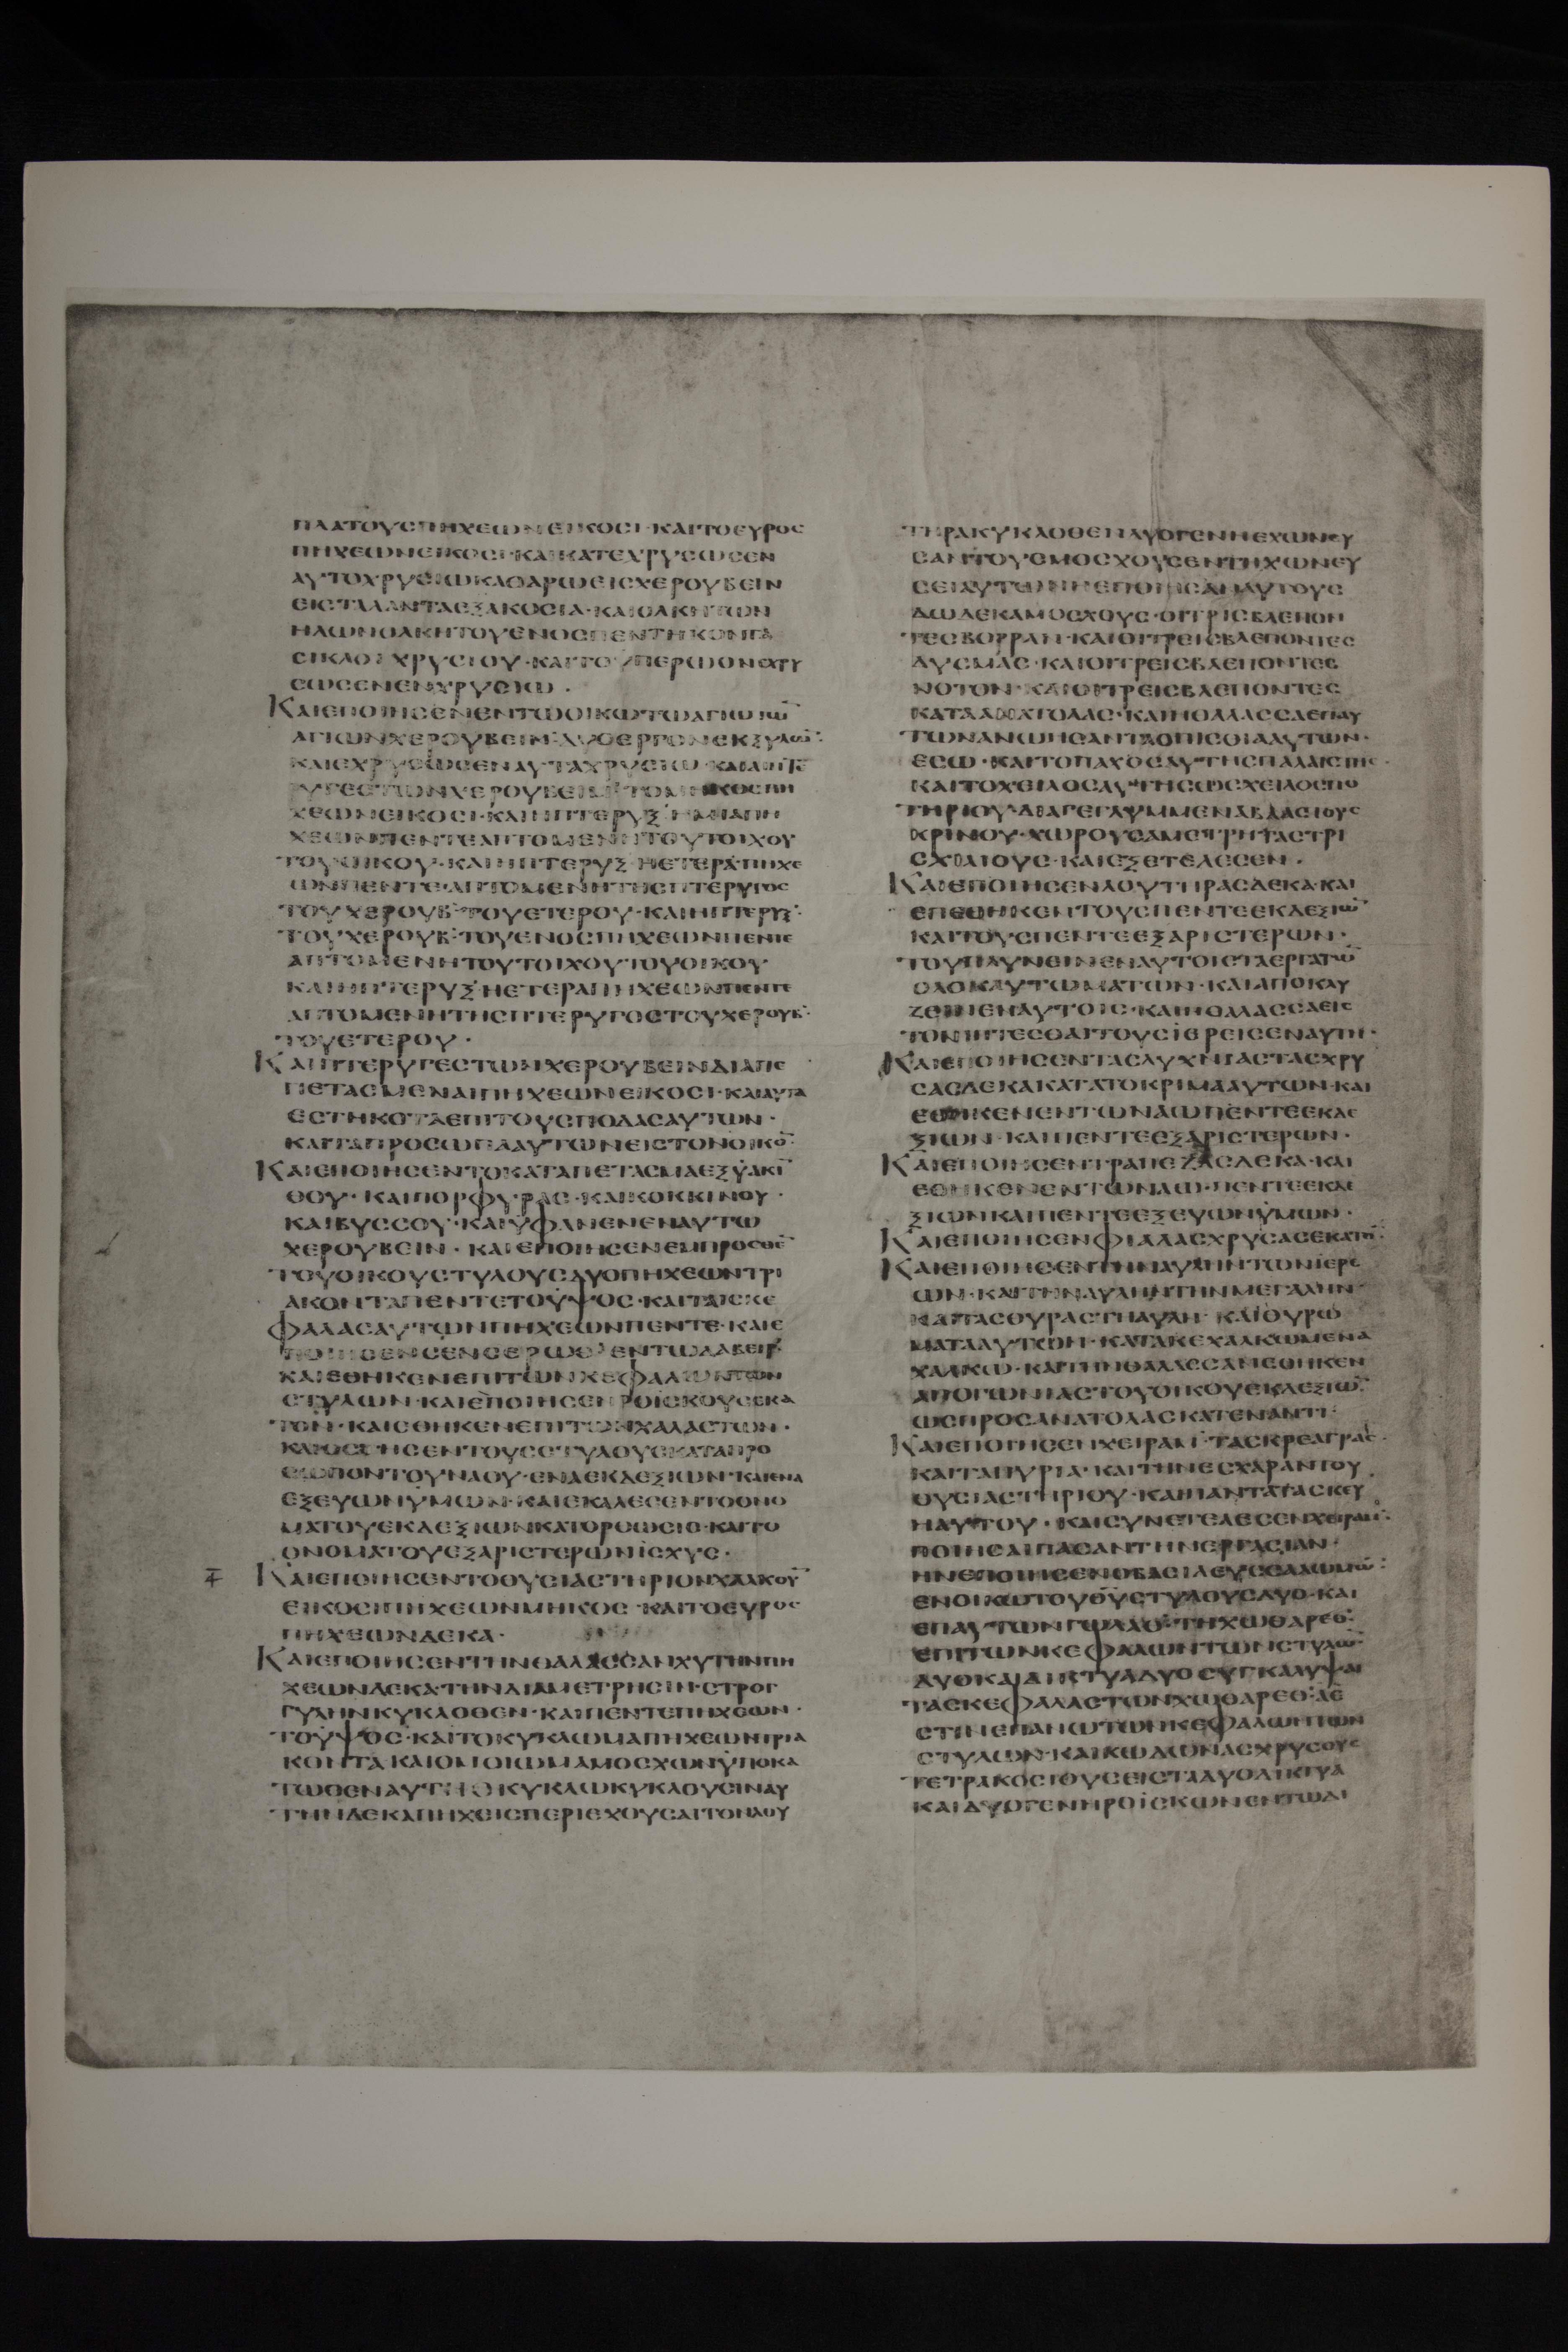 ΠΛΑΤΟΥΣ ΠΗΧΕΩΝ ΕΙΚΟΣΙ· ΚΑΙ ΤΟ ΕΥΡΟΣ
ΠΗΧΕΩΝ ΕΙΚΟΣΙ· ΚΑΙ ΚΑΤΕΧΡΥΣΩΣΕΝ
ΑΥΤΟ ΧΡΥΣΙΩ ΚΑΘΑΡΩ ΕΙΣ ΧΕΡΟΥΒΕΙΝ
ΕΙΣ ΤΑΛΑΝΤΑ ΕΞΑΚΟΣΙΑ· ΚΑΙ ΟΛΚΗ ΤΩΝ
ΗΛΩΝ ΟΛΚΗ ΤΟΥ ΕΝΟΣ ΠΕΝΤΗΚΟΝΤΑ
ΣΙΚΛΟΙ ΧΡΥΣΙΟΥ· ΚΑΙ ΤΟ ΥΠΕΡΩΟΝ ΕΧΡΥ
ΣΩΣΕΝ ΕΝ ΧΡΥΣΙΩ·
ΚΑΙ ΕΠΟΙΗΣΕΝ ΕΝ ΤΩ ΟΙΚΩ ΤΩ ΑΓΙΩ ΤΩ̅
ΑΓΙΩΝ ΧΕΡΟΥΒΕΙΝ ΔΥΟ ΕΡΓΟΝ ΕΚ ΞΥΛΩ̅·
ΚΑΙ ΕΧΡΥΣΩΣΕΝ ΑΥΤΑ ΧΡΥΣΙΩ·
ΡΥΓΕΣ ΤΩΝ ΧΕΡΟΥΒΕΙΝ ΤΟ ΜΗΚΟΣ ΠΗ
ΧΕΩΝ ΕΙΚΟΣΙ· ΚΑΙ Η ΠΤΕΡΥΞ Η ΜΙΑ ΠΗ
ΧΕΩΝ ΠΕΝΤΕ ΑΠΤΟΜΕΝΗ ΤΟΥ ΤΟΙΧΟΥ
ΤΟΥ ΟΙΚΟΥ· ΚΑΙ Η ΠΤΕΡΥΞ Η ΕΤΕΡΑ ΠΗΧΕ
ΩΝ ΠΕΝΤΕ· ΑΠΤΟΜΕΝΗ ΤΗΣ ΠΤΕΡΥΓΟΣ
ΤΟΥ ΧΕΡΟΥΒ· ΤΟΥ ΕΤΕΡΟΥ· ΚΑΙ Η ΠΤΕΡΥΞ·
ΤΟΥ ΧΕΡΟΥΒ· ΤΟΥ ΕΝΟΣ ΠΗΧΕΩΝ ΠΕΝΤΕ
ΑΠΤΟΜΕΝΗ ΤΟΥ ΤΟΙΧΟΥ ΤΟΥ ΟΙΚΟΥ·
ΚΑΙ Η ΠΤΕΡΥΞ Η ΕΤΕΡΑ ΠΗΧΕΩΝ ΠΕΝΤΕ
ΑΠΤΟΜΕΝΗ ΤΗΣ ΠΤΕΡΥΓΟΣ ΤΟΥ ΧΕΡΟΥΒ·
ΤΟΥ ΕΤΕΡΟΥ·
ΚΑΙ ΠΤΕΡΥΓΕΣ ΤΩΝ ΧΕΡΟΥΒΕΙΝ ΔΙΑΠΕ
ΠΕΤΑΣΜΕΝΑΙ ΠΗΧΕΩΝ ΕΙΚΟΣΙ· ΚΑΙ ΑΥΤΑ
ΕΣΤΗΚΟΤΑ ΕΠΙ ΤΟΥΣ ΠΟΔΑΣ ΑΥΤΩΝ·
ΚΑΙ ΤΑ ΠΡΟΣΩΠΑ ΑΥΤΩΝ ΕΙΣ ΤΟΝ ΟΙΚΟ̅·
ΚΑΙ ΕΠΟΙΗΣΕΝ ΤΟ ΚΑΤΑΠΕΤΑΣΜΑ ΕΞ ΥΑΚΙ̅
ΘΟΥ· ΚΑΙ ΠΟΡΦΥΡΑΣ· ΚΑΙ ΚΟΚΚΙΝΟΥ·
ΚΑΙ ΒΥΣΣΟΥ· ΚΑΙ ΥΦΑΝΕΝ ΕΝ ΑΥΤΩ
ΧΕΡΟΥΒΕΙΝ· ΚΑΙ ΕΠΟΙΗΣΕΝ ΕΜΠΡΟΣΘΕ̅
ΤΟΥ ΟΙΚΟΥ ΣΤΥΛΟΥΣ ΔΥΟ ΠΗΧΕΩΝ ΤΡΙ
ΑΚΟΝΤΑ ΠΕΝΤΕ ΤΟ ΥΨΟΣ· ΚΑΙ ΤΑΣ ΚΕ
ΦΑΛΑΣ ΑΥΤΩΝ ΠΗΧΕΩΝ ΠΕΝΤΕ· ΚΑΙ Ε
ΠΟΙΗΣΕΝ ΣΕΡΣΕΡΩΘ ΕΝ ΤΩ ΔΑΒΕΙΡ·
ΚΑΙ ΕΘΗΚΕΝ ΕΠΙ ΤΩΝ ΚΕΦΑΛΩΝ ΤΩΝ
ΣΤΥΛΩΝ· ΚΑΙ ΕΠΟΙΗΣΕΝ ΡΟΙΣΚΟΥΣ ΕΚΑ
ΤΟΝ· ΚΑΙ ΕΘΗΚΕΝ ΕΠΙ ΤΩΝ ΧΑΛΑΣΤΩΝ·
ΚΑΙ ΕΣΤΗΣΕΝ ΤΟΥΣ ΣΤΥΛΟΥΣ ΚΑΤΑ ΠΡΟ
ΣΩΠΟΝ ΤΟΥ ΝΑΟΥ· ΕΝΑ ΕΚ ΔΕΞΙΩΝ· ΚΑΙ ΕΝΑ
ΕΞ ΕΥΩΝΥΜΩΝ· ΚΑΙ ΕΚΑΛΕΣΕΝ ΤΟ ΟΝΟ
ΜΑ ΤΟΥ ΕΚ ΔΕΞΙΩΝ ΚΑΤΟΡΘΩΣΙΣ· ΚΑΙ ΤΟ
ΟΝΟΜΑ ΤΟΥ ΕΞ ΑΡΙΣΤΕΡΩΝ ΙΣΧΥΣ·
ΚΑΙ ΕΠΟΙΗΣΕΝ ΤΟ ΘΥΣΙΑΣΤΗΡΙΟΝ ΧΑΛΚΟΥ̅
ΕΙΚΟΣΙ ΠΗΧΕΩΝ ΜΗΚΟΣ· ΚΑΙ ΤΟ ΕΥΡΟΣ
ΠΗΧΕΩΝ ΔΕΚΑ·
ΚΑΙ ΕΠΟΙΗΣΕΝ ΤΗΝ ΘΑΛΑΣΣΑΝ ΧΥΤΗΝ ΠΗ
ΧΕΩΝ ΔΕΚΑ ΤΗΝ ΔΙΑΜΕΤΡΗΣΙΝ· ΣΤΡΟΓ
ΓΥΛΗΝ ΚΥΚΛΟΘΕΝ· ΚΑΙ ΠΕΝΤΕ ΠΗΧΕΩΝ·
ΤΟ ΥΨΟΣ· ΚΑΙ ΤΟ ΚΥΚΛΩΜΑ ΠΗΧΕΩΝ ΤΡΙΑ
ΚΟΝΤΑ ΚΑΙ ΟΜΟΙΩΜΑ ΜΟΣΧΩΝ ΥΠΟΚΑ
ΤΩΘΕΝ ΑΥΤΗΣ ΚΥΚΛΩ ΚΥΚΛΟΥΣΙΝ ΑΥ
ΤΗΝ ΔΕΚΑ ΠΗΧΕΙΣ ΠΕΡΙΕΧΟΥΣΑΙ ΤΟΝ ΛΟΥ
ΤΗΡΑ ΚΥΚΛΟΘΕΝ ΔΥΟ ΓΕΝΗ ΕΧΩΝΕΥ
ΣΑΝ ΤΟΥΣ ΜΟΣΧΟΥΣ ΕΝ ΤΗ ΧΩΝΕΥ
ΣΕΙ ΑΥΤΩΝ Η ΕΠΟΙΗΣΑΝ ΑΥΤΟΥΣ
ΔΩΔΕΚΑ ΜΟΣΧΟΥΣ· ΟΙ ΤΡΙΣ ΒΛΕΠΟΝ
ΤΕΣ ΒΟΡΡΑΝ· ΚΑΙ ΟΙ ΤΡΕΙΣ ΒΛΕΠΟΝΤΕΣ
ΔΥΣΜΑΣ· ΚΑΙ ΟΙ ΤΡΕΙΣ ΒΛΕΠΟΝΤΕΣ
ΝΟΤΟΝ· ΚΑΙ ΟΙ ΤΡΕΙΣ ΒΛΕΠΟΝΤΕΣ
ΚΑΤ ΑΝΑΤΟΛΑΣ· ΚΑΙ Η ΘΑΛΑΣΣΑ ΕΠ ΑΥ
ΤΩΝ ΑΝΩ ΗΣΑΝ ΤΑ ΟΠΙΣΘΙΑ ΑΥΤΩΝ·
ΕΣΩ· ΚΑΙ ΤΟ ΠΑΧΟΣ ΑΥΤΗΣ ΠΑΛΑΙΣΤΗΣ·
ΚΑΙ ΤΟ ΧΕΙΛΟΣ ΑΥΤΗΣ ΩΣ ΧΕΙΛΟΣ ΠΟ
ΤΗΡΙΟΥ· ΔΙΑΓΕΓΛΥΜΜΕΝΑ ΒΛΑΣΤΟΥΣ
ΚΡΙΝΟΥ· ΧΩΡΟΥΣΑ ΜΕΤΡΗΤΑΣ ΤΡΙ
ΣΧΙΛΙΟΥΣ· ΚΑΙ ΕΞΕΤΕΛΕΣΕΝ·
ΚΑΙ ΕΠΟΙΗΣΕΝ ΛΟΥΤΗΡΑΣ ΔΕΚΑ· ΚΑΙ
ΕΠΕΘΗΚΕΝ ΤΟΥΣ ΠΕΝΤΕ ΕΚ ΔΕΞΙΩ̅·
ΚΑΙ ΤΟΥΣ ΠΕΝΤΕ ΕΞ ΑΡΙΣΤΕΡΩΝ·
ΤΟΥ ΠΛΥΝΕΙΝ ΕΝ ΑΥΤΟΙΣ ΤΑ ΕΡΓΑ ΤΩ̅
ΟΛΟΚΑΥΤΩΜΑΤΩΝ· ΚΑΙ ΑΠΟΚΛΥ
ΖΕΙΝ ΕΝ ΑΥΤΟΙΣ· ΚΑΙ Η ΘΑΛΑΣΣΑ ΕΙΣ
ΤΟ ΝΙΠΤΕΣΘΑΙ ΤΟΥΣ ΙΕΡΕΙΣ ΕΝ ΑΥΤΗ·
ΚΑΙ ΕΠΟΙΗΣΕΝ ΤΑΣ ΛΥΧΝΙΑΣ ΤΑΣ ΧΡΥ
ΣΑΣ ΔΕΚΑ ΚΑΤΑ ΤΟ ΚΡΙΜΑ ΑΥΤΩΝ· ΚΑΙ
ΕΘΗΚΕΝ ΕΝ ΤΩ ΝΑΩ ΠΕΝΤΕ ΕΚ ΔΕ
ΞΙΩΝ· ΚΑΙ ΠΕΝΤΕ ΕΞ ΑΡΙΣΤΕΡΩΝ·
ΚΑΙ ΕΠΟΙΗΣΕΝ ΤΡΑΠΕΖΑΣ ΔΕΚΑ· ΚΑΙ
ΕΘΗΚΕΝ ΕΝ ΤΩ ΝΑΩ· ΠΕΝΤΕ ΕΚ ΔΕ
ΞΙΩΝ ΚΑΙ ΠΕΝΤΕ ΕΞ ΕΥΩΝΥΜΩΝ·
ΚΑΙ ΕΠΟΙΗΣΕΝ ΦΙΑΛΑΣ ΧΡΥΣΑΣ ΕΚΑΤΟ̅·
ΚΑΙ ΕΠΟΙΗΣΕΝ ΤΗΝ ΑΥΛΗΝ ΤΩΝ ΙΕΡΕ
ΩΝ· ΚΑΙ ΤΗΝ ΑΥΛΗΝ ΤΗΝ ΜΕΓΑΛΗΝ·
ΚΑΙ ΤΑΣ ΘΥΡΑΣ ΤΗ ΑΥΛΗ· ΚΑΙ ΘΥΡΩ
ΜΑΤΑ ΑΥΤΩΝ· ΚΑΤΑΚΕΧΑΛΚΩΜΕΝΑ
ΧΑΛΚΩ· ΚΑΙ ΤΗΝ ΘΑΛΑΣΣΑΝ ΕΘΗΚΕΝ
ΑΠΟ ΓΩΝΙΑΣ ΤΟΥ ΟΙΚΟΥ ΕΚ ΔΕΞΙΩ̅·
ΩΣ ΠΡΟΣ ΑΝΑΤΟΛΑΣ ΚΑΤΕΝΑΝΤΙ·
ΚΑΙ ΕΠΟΙΗΣΕΝ ΧΕΙΡΑΜ· ΤΑΣ ΚΡΕΑΓΡΑΣ·
ΚΑΙ ΤΑ ΠΥΡΙΑ· ΚΑΙ ΤΗΝ ΕΣΧΑΡΑΝ ΤΟΥ
ΘΥΣΙΑΣΤΗΡΙΟΥ· ΚΑΙ ΠΑΝΤΑ ΤΑ ΣΚΕΥ
Η ΑΥΤΟΥ· ΚΑΙ ΣΥΝΕΤΕΛΕΣΕΝ ΧΕΙΡΑΜ·
ΠΟΙΗΣΑΙ ΠΑΣΑΝ ΤΗΝ ΕΡΓΑΣΙΑΝ·
ΗΝ ΕΠΟΙΗΣΕΝ Ο ΒΑΣΙΛΕΥΣ ΣΑΛΩΜΩ̅·
ΕΝ ΟΙΚΩ ΤΟΥ ΘΥ ΣΤΥΛΟΥΣ ΔΥΟ· ΚΑΙ
ΕΠ ΑΥΤΩΝ ΓΩΛΑΘ· ΤΗ ΧΩΘΑΡΕΘ·
ΕΠΙ ΤΩΝ ΚΕΦΑΛΩΝ ΤΩΝ ΣΤΥΛΩ̅·
ΔΥΟ ΚΑΙ ΔΙΚΤΥΑ ΔΥΟ ΣΥΓΚΑΛΥΨΑΙ
ΤΑΣ ΚΕΦΑΛΑΣ ΤΩΝ ΧΩΘΑΡΕΘ· ΑΕ
ΣΤΙΝ ΕΠΑΝΩ ΤΩΝ ΚΕΦΑΛΩΝ ΤΩΝ
ΣΤΥΛΩΝ· ΚΑΙ ΚΩΔΩΝΑΣ ΧΡΥΣΟΥΣ
ΤΕΤΡΑΚΟΣΙΟΥΣ ΕΙΣ ΤΑ ΔΥΟ ΔΙΚΤΥΑ
ΚΑΙ ΔΥΟ ΓΕΝΗ ΡΟΙΣΚΩΝ ΕΝ ΤΩ ΔΙ